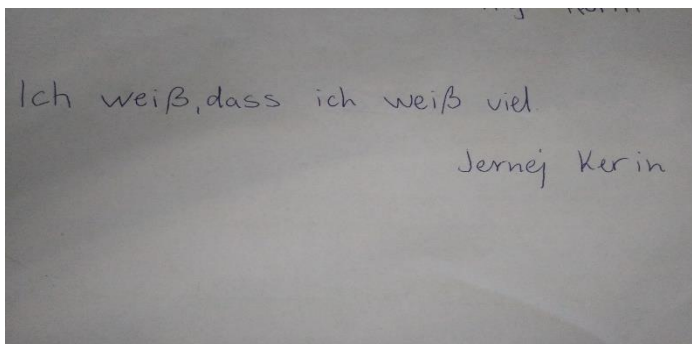 Ich weiß, dass ich weiß viel
Jernej Kerin